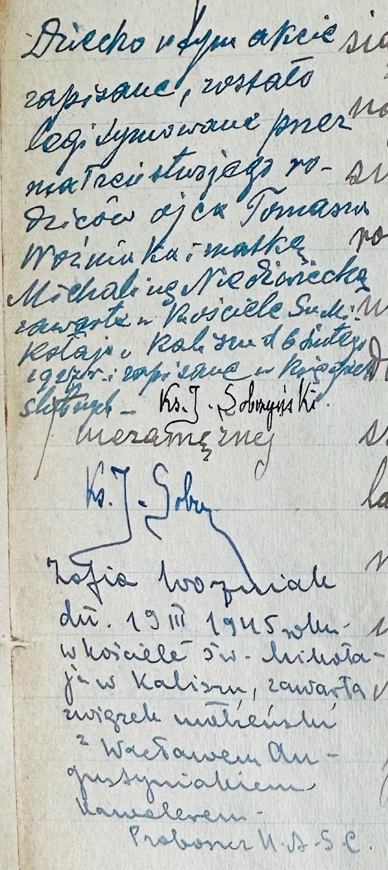 Dziecko w tym akcie
zapisane, zostało
legitymowane przez
małżeństwo jego ro-
dziców ojca Tomasza
Woźniaka i matką
Michaliną Niedźwiecką
zawarte w Kościele Św. Mi-
kołaja w Kaliszu d 6 lutego
i zapisane w księgach
ślubnych -
Ks. J. Sobczyński.
niezamężnej
Ks. J. Sobczy
Zofia Woźniak
dn. 19 III 1945 roku
w kościele św. Mikoła-
ja w Kaliszu, zawarła
związek małżeński
z Wacławem Au-
gustyniakiem
kawalerem -
Proboszcz U. A. S. C.